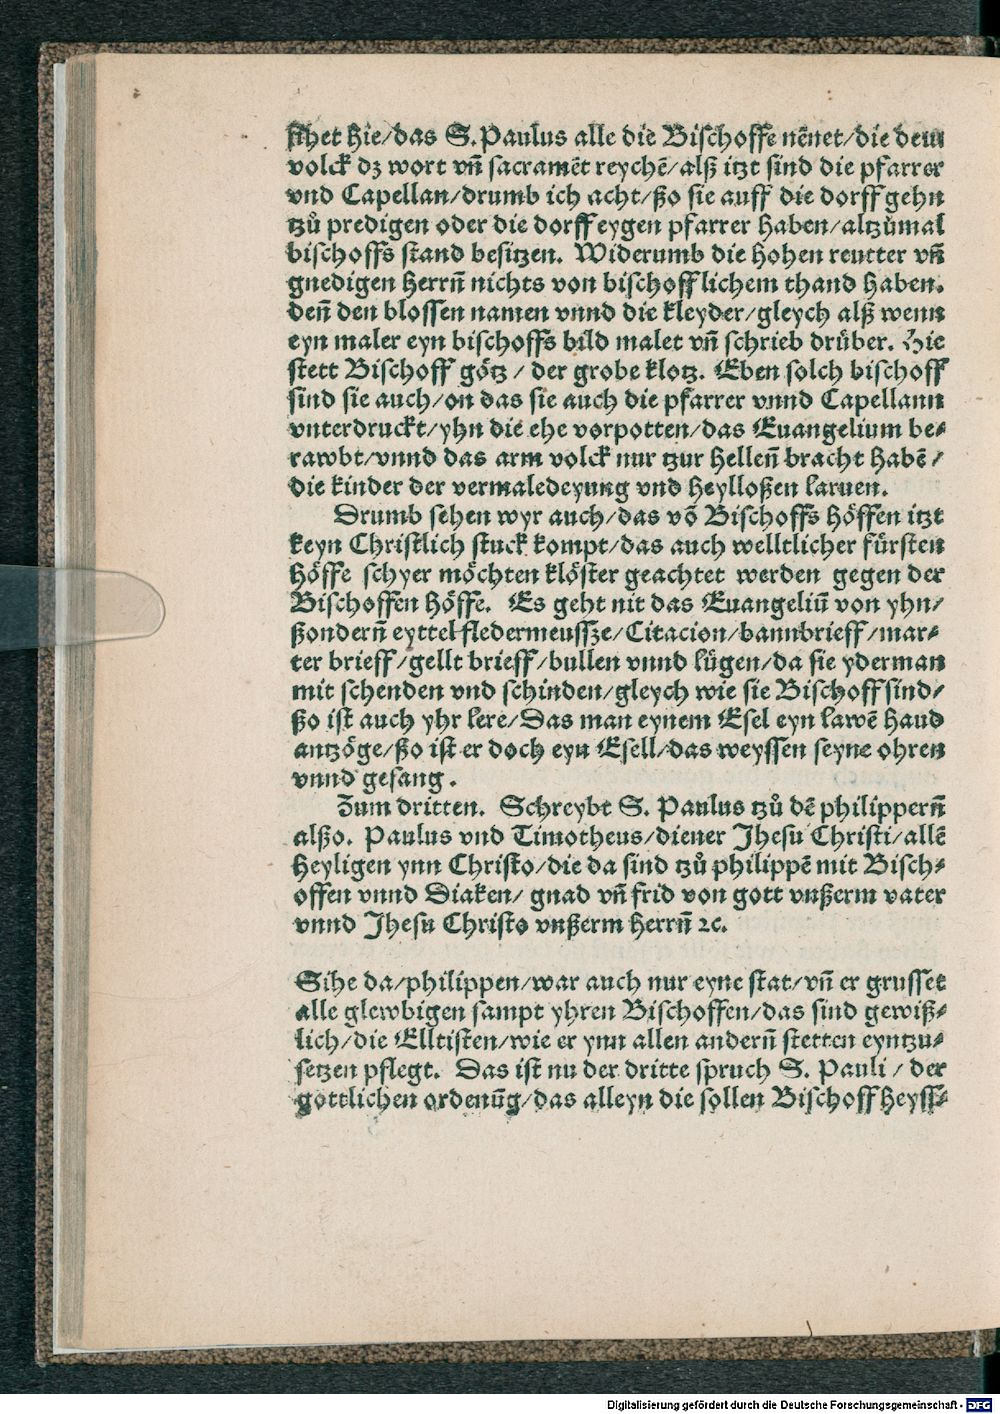 sihet hie/das S. Paulus alle die Bischoffe nēnet/die dem
volck dz wort vn̄ sacramēt reychē/alß itzt sind die pfarrer
vnd Capellan/drumb ich acht/ßo sie auff die dorff gehn
tzů predigen oder die dorff eygen pfarrer haben/altzůmal
bischoffs stand besitzen. Widerumb die hohen reutter vn̄
gnedigen herrn̄ nichts von bischofflichem thand haben.
den̄ den blossen namen vnnd die kleyder/gleych alß wenn
eyn maler eyn bischoffs bild malet vn̄ schrieb drüber. Hie
stett Bischoff götz / der grobe klotz. Eben solch bischoff
sind sie auch/on das sie auch die pfarrer vnnd Capellann
vnterdruckt/yhn die ehe vorpotten/das Euangelium be⸗
rawbt/vnnd das arm volck nur tzur hellen̄ bracht habē/
die kinder der vermaledeyung vnd heylloßen laruen.
Drumb sehen wyr auch/das vō Bischoffs höffen itzt
keyn Christlich stuck kompt/das auch welltlicher fürsten
höffe schyer möchten klöster geachtet werden gegen der
Bischoffen höffe. Es geht nit das Euangeliū von yhn/
ßondern̄ eyttel fledermeussze/Citacion/bannbrieff/mar⸗
ter brieff/gellt brieff/bullen vnnd lügen/da sie yderman
mit schenden vnd schinden/gleych wie sie Bischoff sind/
ßo ist auch yhr lere/Das man eynem Esel eyn lawē haud
antzöge/ßo ist er doch eyn Esell/das weyssen seyne ohren
vnnd gesang.
Zum dritten. Schreybt S. Paulus tzů dē philippern̄
alßo. Paulus vnd Timotheus/diener Jhesu Christi/allē
heyligen ynn Christo/die da sind tzů philippē mit Bisch⸗
offen vnnd Diaken/ gnad vn̄ frid von gott vnßerm vater
vnnd Jhesu Christo vnßerm herrn̄ ꝛc.
Sihe da/philippen/war auch nur eyne stat/vn̄ er grusset
alle glewbigen sampt yhren Bischoffen/das sind gewiß⸗
lich/die Elltisten/wie er ynn allen andern̄ stetten eyntzu⸗
setzen pflegt. Das ist nu der dritte spruch S. Pauli / der
gottlichen ordenūg/das alleyn die sollen Bischoff heyss⸗
Digitalisierung gefördert durch die Deutsche Forschungsgemeinschaft - DFG